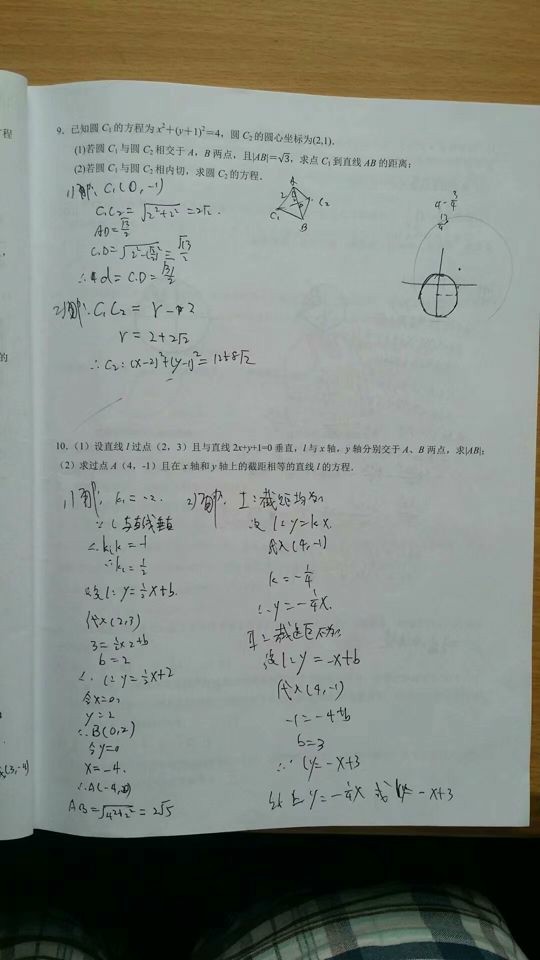 程
9．已知圆 C₁ 的方程为 x²＋(y＋1)²＝4，圆 C₂ 的圆心坐标为(2,1).
(1)若圆 C₁ 与圆 C₂ 相交于 A，B 两点，且|AB|＝√3，求点 C₁ 到直线 AB 的距离；
(2)若圆 C₁ 与圆 C₂ 相内切，求圆 C₂ 的方程．
1)解: C₁(0,-1)
C₁C₂=√(2²+2²)=2√2
A
2
C₁
C₂
B
2)解: C₁C₂=r-2
r=2+2√2
∴C₂:(x-2)²+(y-1)²=12+8√2
的
10．（1）设直线 l 过点（2，3）且与直线 2x+y+1=0 垂直，l 与 x 轴，y 轴分别交于 A、B 两点，求|AB|；
（2）求过点 A（4，-1）且在 x 轴和 y 轴上的截距相等的直线 l 的方程．
1)解: k₁=-2.
∵l与直线垂直
∴k₁k=-1
∴k₂=1/2
设l:y=1/2x+b.
代入(2,3)
3=1/2×2+b
b=2
∴l:y=1/2x+2
令x=0,
y=2
∴B(0,2)
令y=0
x=-4.
∴A(-4,0)
AB=√(4²+2²)=2√5
2)解: I:截距均为0
设l:y=kx.
代入(4,-1)
k=-1/4
∴y=-1/4x.
II:截距不为0
设l:y=-x+b
代入(4,-1)
-1=-4+b
b=3
∴l:y=-x+3
综上y=-1/4x或y=-x+3
(3,-4)